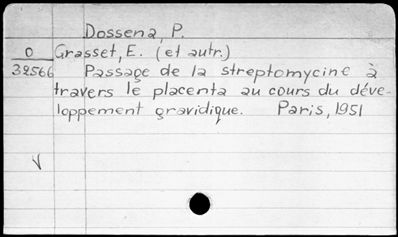 Dossena, P.
O Grasset, E. (et autr.)
32566 Passage de la streptomycine à
travers le placenta au cours du déve-
loppement gravidique. Paris, 1951
V